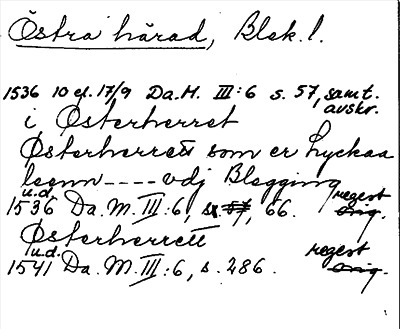 Östra härad, Blek. l.
1536 10 el. 17/9 Da. M. III:6 s. 57, samt. avskr.
i Østerherret
Østerherrett som er Lyckaa
leenn ---- vdj Blegging
1536 u.d. Da. M. III:6, s. 57, 66. regest orig.
Østerherrett
1541 u.d. Da. M. III:6, s. 286. regest orig.